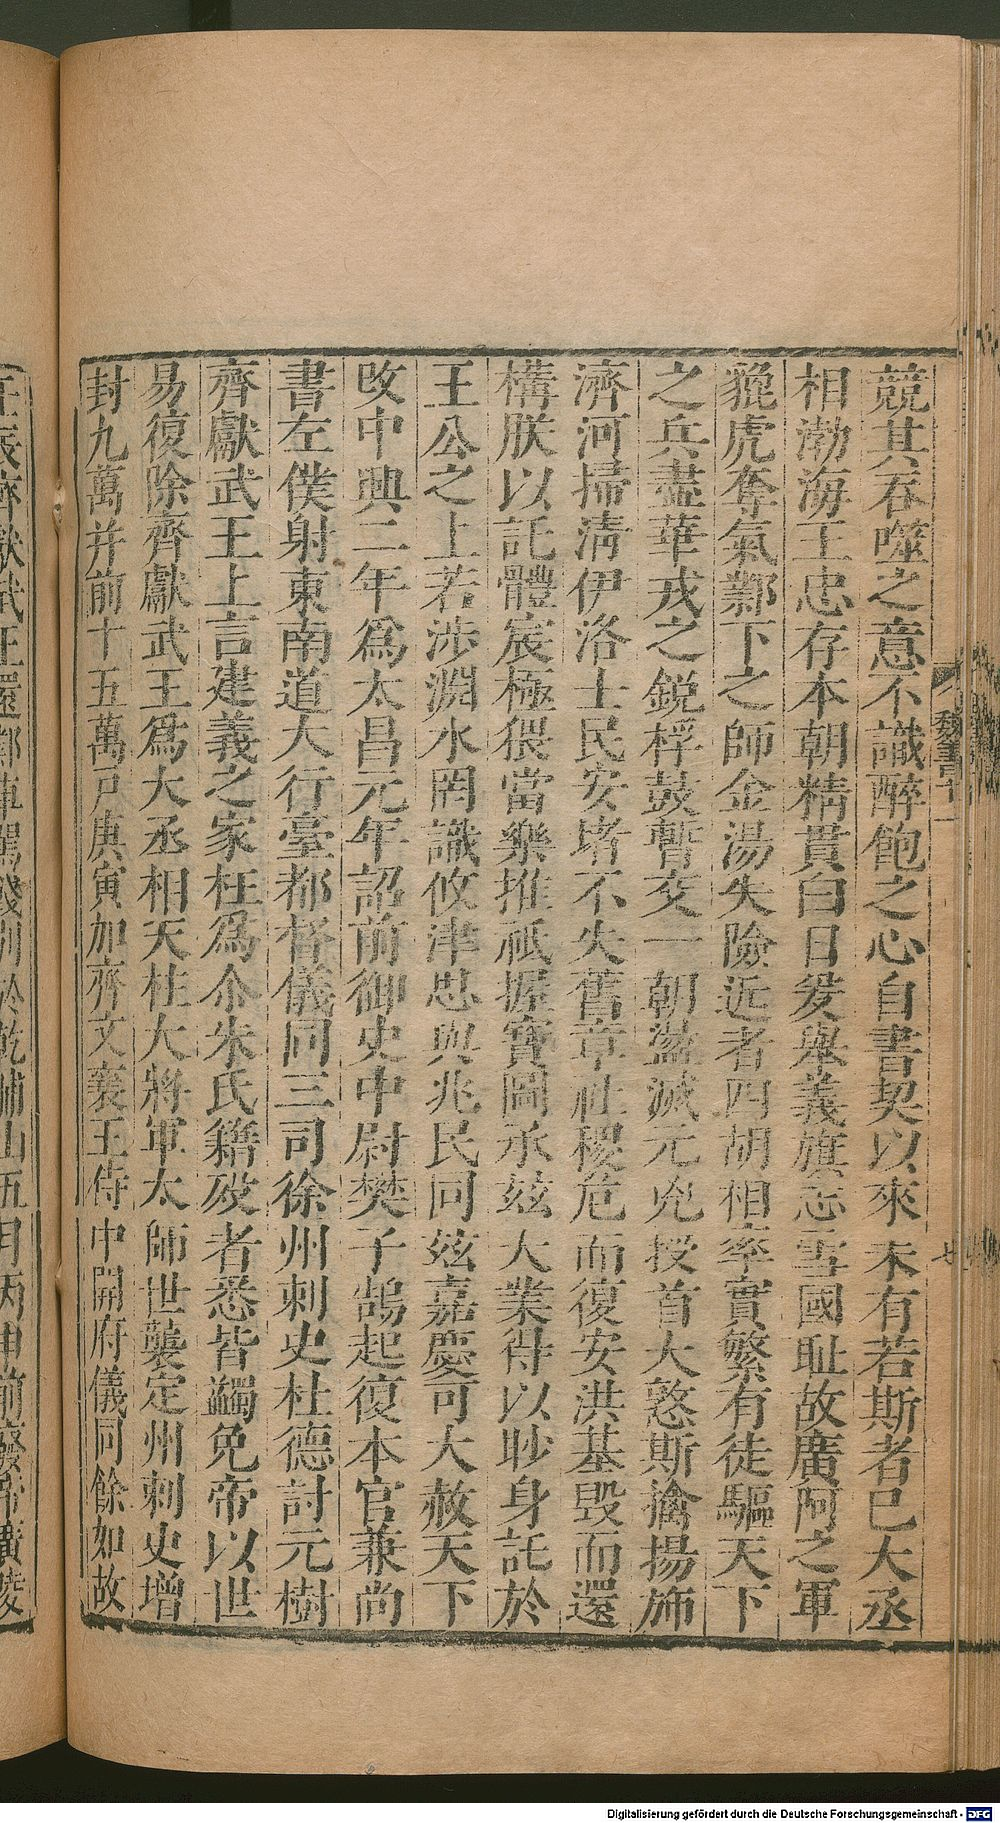 競其吞噬之意不識醉飽之心自書契以來未有若斯者已大丞
相渤海王忠存本朝精貫白日爰舉義旗志雪國耻故廣阿之軍
貔虎奪氣鄴下之師金湯失險近者四胡相率實繁有徒驅天下
之兵盡華戎之銳桴鼓暫交一朝盪滅元兇授首大憝斯擒揚斾
濟河掃淸伊洛士民安堵不失舊章社稷危而復安洪基毀而還
構朕以託體宸極猥當樂推祗握寶圖承兹大業得以眇身託於
王公之上若涉淵水罔識攸津思與兆民同兹嘉慶可大赦天下
改中興二年爲太昌元年詔前御史中尉樊子鵠起復本官兼尚
書左僕射東南道大行臺都督儀同三司徐州刺史杜德討元樹
齊獻武王上言建義之家枉爲尒朱氏籍没者悉皆蠲免帝以世
易復除齊獻武王爲大丞相天柱大將軍太師世襲定州刺史增
封九萬并前十五萬戸庚寅加齊文襄王侍中開府儀同餘如故
魏書十一
七
Digitalisierung gefördert durch die Deutsche Forschungsgemeinschaft - DFG